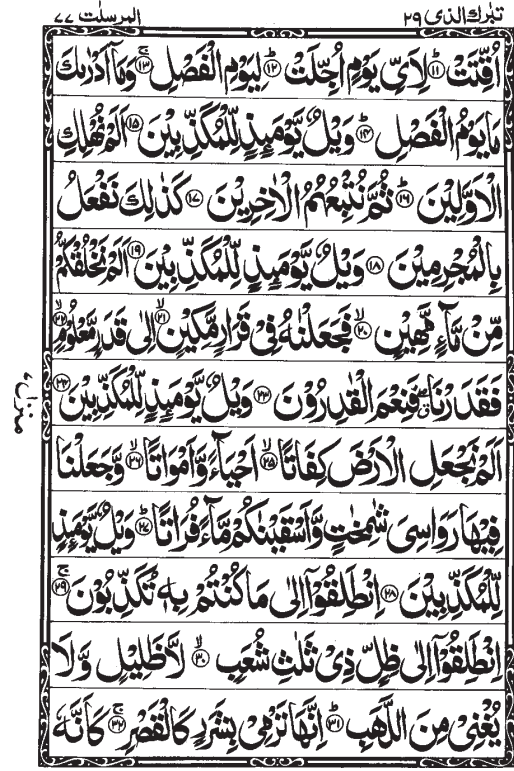 تبٰرك الذی ۲۹
المرسلٰت ۷۷
اُقِّتَتْ ۱۱ لِاَىِّ يَوْمٍ اُجِّلَتْ ۱۲ لِيَوْمِ الْفَصْلِ ۱۳ وَمَآ اَدْرٰىكَ
مَا يَوْمُ الْفَصْلِ ۱۴ وَيْلٌ يَّوْمَئِذٍ لِّلْمُكَذِّبِيْنَ ۱۵ اَلَمْ نُهْلِكِ
الْاَوَّلِيْنَ ۱۶ ثُمَّ نُتْبِعُهُمُ الْاٰخِرِيْنَ ۱۷ كَذٰلِكَ نَفْعَلُ
بِالْمُجْرِمِيْنَ ۱۸ وَيْلٌ يَّوْمَئِذٍ لِّلْمُكَذِّبِيْنَ ۱۹ اَلَمْ نَخْلُقْكُّمْ
مِّنْ مَّآءٍ مَّهِيْنٍ ۲۰ فَجَعَلْنٰهُ فِىْ قَرَارٍ مَّكِيْنٍ ۲۱ اِلٰى قَدَرٍ مَّعْلُوْمٍ ۲۲
فَقَدَرْنَا فَنِعْمَ الْقٰدِرُوْنَ ۲۳ وَيْلٌ يَّوْمَئِذٍ لِّلْمُكَذِّبِيْنَ ۲۴
اَلَمْ نَجْعَلِ الْاَرْضَ كِفَاتًا ۲۵ اَحْيَآءً وَّاَمْوَاتًا ۲۶ وَّجَعَلْنَا
فِيْهَا رَوَاسِىَ شٰمِخٰتٍ وَّاَسْقَيْنٰكُمْ مَّآءً فُرَاتًا ۲۷ وَيْلٌ يَّوْمَئِذٍ
لِّلْمُكَذِّبِيْنَ ۲۸ اِنْطَلِقُوْٓا اِلٰى مَا كُنْتُمْ بِهٖ تُكَذِّبُوْنَ ۲۹
اِنْطَلِقُوْٓا اِلٰى ظِلٍّ ذِىْ ثَلٰثِ شُعَبٍ ۳۰ لَّا ظَلِيْلٍ وَّلَا
يُغْنِىْ مِنَ اللَّهَبِ ۳۱ اِنَّهَا تَرْمِىْ بِشَرَرٍ كَالْقَصْرِ ۳۲ كَاَنَّهٗ
منزل ۷